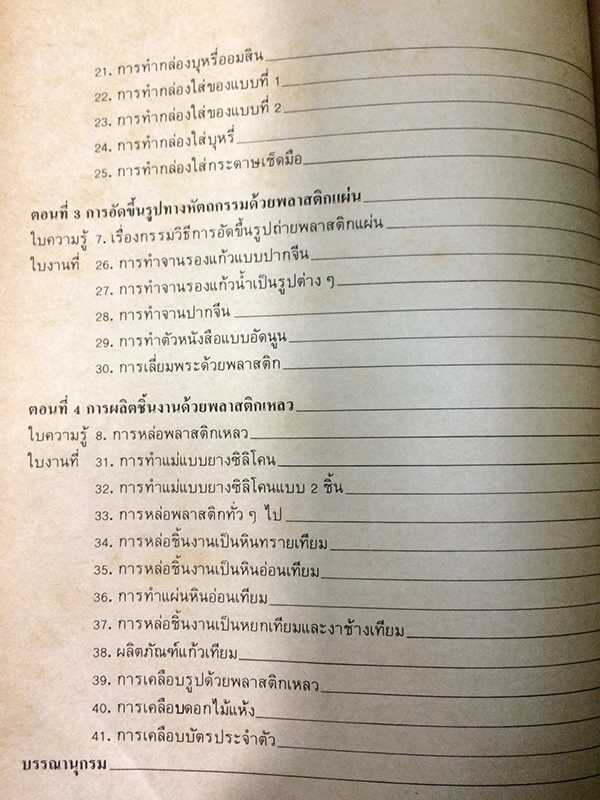 21. การทำกล่องบุหรี่ออมสิน
22. การทำกล่องใส่ของแบบที่ 1
23. การทำกล่องใส่ของแบบที่ 2
24. การทำกล่องใส่บุหรี่
25. การทำกล่องใส่กระดาษเช็ดมือ
ตอนที่ 3 การอัดขึ้นรูปทางหัตถกรรมด้วยพลาสติกแผ่น
ใบความรู้ 7. เรื่องกรรมวิธีการอัดขึ้นรูปถ่ายพลาสติกแผ่น
ใบงานที่ 26. การทำจานรองแก้วแบบปากจีน
27. การทำจานรองแก้วน้ำเป็นรูปต่าง ๆ
28. การทำจานปากจีน
29. การทำตัวหนังสือแบบอัดนูน
30. การเลี่ยมพระด้วยพลาสติก
ตอนที่ 4 การผลิตชิ้นงานด้วยพลาสติกเหลว
ใบความรู้ 8. การหล่อพลาสติกเหลว
ใบงานที่ 31. การทำแม่แบบยางซิลิโคน
32. การทำแม่แบบยางซิลิโคนแบบ 2 ชิ้น
33. การหล่อพลาสติกทั่ว ๆ ไป
34. การหล่อชิ้นงานเป็นหินทรายเทียม
35. การหล่อชิ้นงานเป็นหินอ่อนเทียม
36. การทำแผ่นหินอ่อนเทียม
37. การหล่อชิ้นงานเป็นหยกเทียมและงาช้างเทียม
38. ผลิตภัณฑ์แก้วเทียม
39. การเคลือบรูปด้วยพลาสติกเหลว
40. การเคลือบดอกไม้แห้ง
41. การเคลือบบัตรประจำตัว
บรรณานุกรม